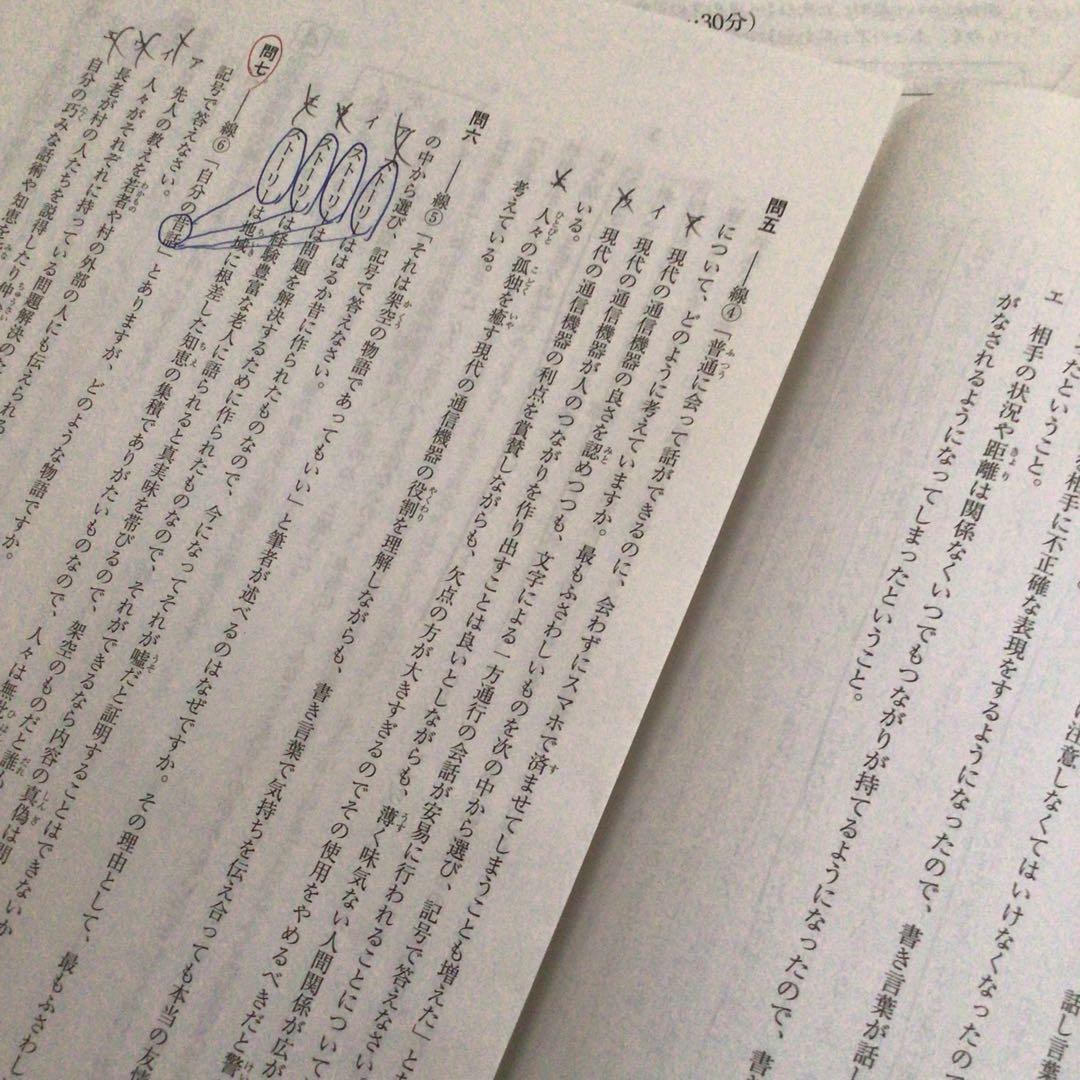 …30分）
相手に不正確な表現をするようになったので、書き言葉が話し
注意しなくてはいけなくなったの
話し言葉
ったということ。
エ 相手の状況や距離は関係なくいつでもつながりが持てるようになったので、書
がなされるようになってしまったということ。
問五 ――線④「普通に会って話ができるのに、会わずにスマホで済ませてしまうことも増えた」と
について、どのように考えていますか。最もふさわしいものを次の中から選び、記号で答えなさい。
現代の通信機器の良さを認めつつも、文字による一方通行の会話が安易に行われることについて
イ 現代の通信機器が人のつながりを作り出すことは良いとしながらも、薄く味気ない人間関係が広が
いる。
現代の通信機器の利点を賞賛しながらも、欠点の方が大きすぎるのでその使用をやめるべきだと警
人々の孤独を癒す現代の通信機器の役割を理解しながらも、書き言葉で気持ちを伝え合っても本当の友情
考えている。
問六 ――線⑤「それは架空の物語であってもいい」と筆者が述べるのはなぜですか。その理由として、最もふさわし
の中から選び、記号で答えなさい。
ア ストーリーははるか昔に作られたものなので、今になってそれが嘘だと証明することはできないか
イ ストーリーは問題を解決するために作られたものなので、それができるなら内容の真偽は問
ストーリーは経験豊富な老人に語られると真実味を帯びるので、架空のものだと誰も
ストーリーは地域に根差した知恵の集積でありがたいものなので、人々は無批
問七 ――線⑥「自分の昔話」とありますが、どのような物語ですか。
記号で答えなさい。
ア 先人の教えを若者や村の外部の人にも伝えられる
イ 人々がそれぞれに持っている問題解決のた
長老が村の人たちを説得したり仲
自分の巧みな話術や知恵を